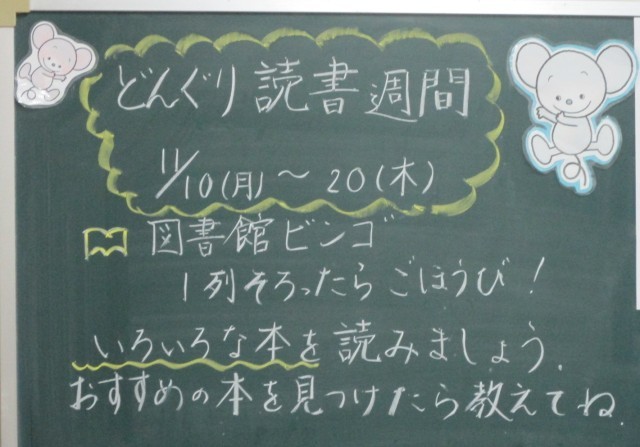 どんぐり読書週間
11/10(月)～20(木)
図書館ビンゴ
1列そろったらごほうび!
いろいろな本を読みましょう.
おすすめの本を見つけたら教えてね.